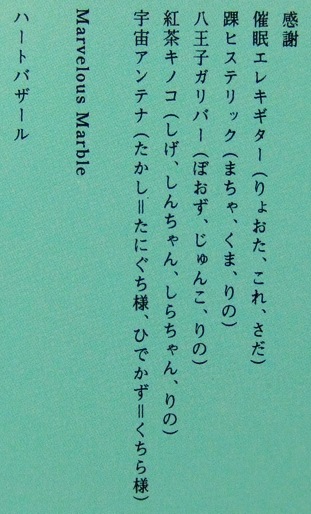 感謝
催眠エレキギター(りょおた、これ、さだ)
踝ヒステリック(まちゃ、くま、りの)
八王子ガリバー(ぽおず、じゅんこ、りの)
紅茶キノコ(しげ、しんちゃん、しらちゃん、りの)
宇宙アンテナ(たかし=たにぐち様、ひでかず=くちら様)
Marvelous Marble
ハートバザール